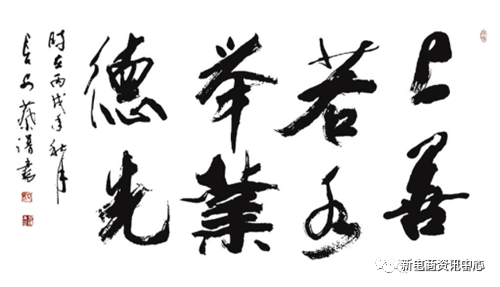 上善
若水
举業
德先
時在丙戌年秋月
长安蔡書
新电商资讯中心